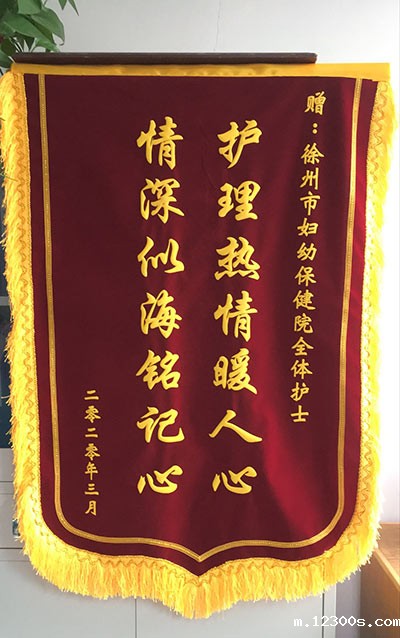 赠：徐州市妇幼保健院全体护士
护理热情暖人心
情深似海铭记心
二零二零年三月
m.12300s.com